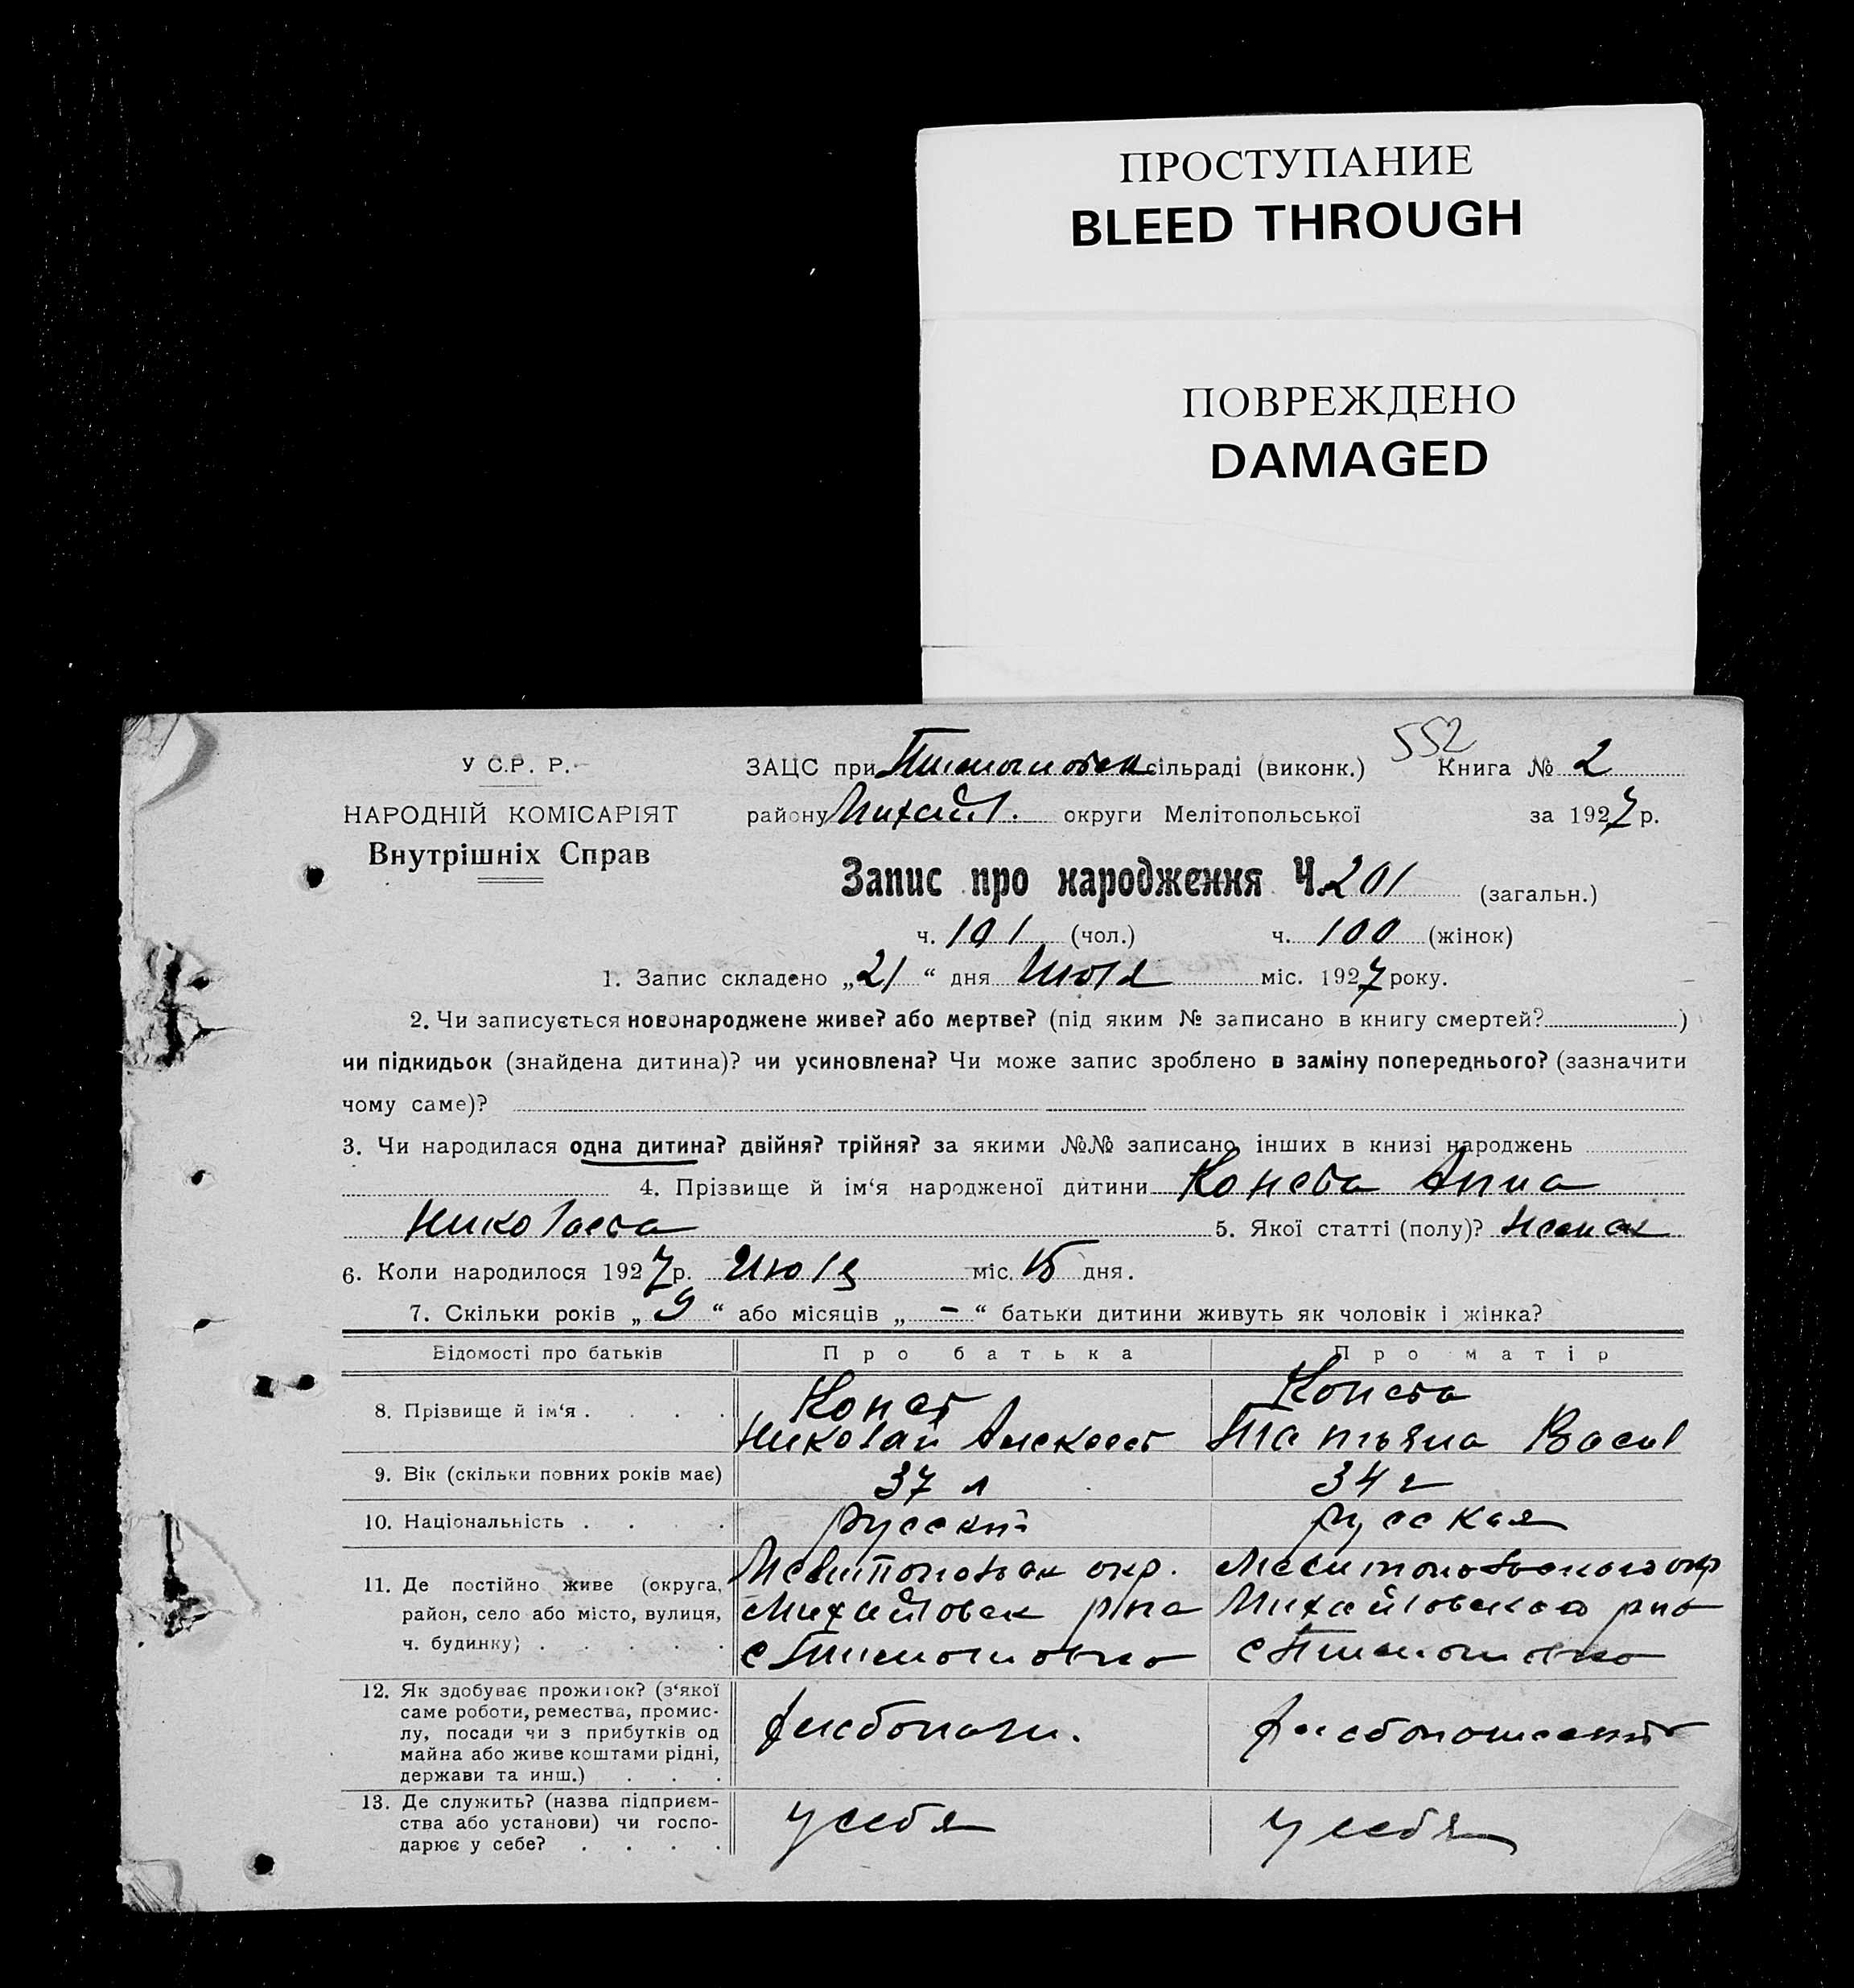 ПРОСТУПАНИЕ
BLEED THROUGH
ПОВРЕЖДЕНО
DAMAGED
552
У С.Р. Р.
НАРОДНІЙ КОМІСАРІЯТ
Внутрішніх Справ
ЗАЦС при Тимошовск сільраді (виконк.) Книга № 2
району Михайл. округи Мелітопольської за 1927 р.
Запис про народження Ч. 201 (загальн.)
ч. 101 (чол.) ч. 100 (жінок)
1. Запис складено „21“ дня Июля міс. 1927 року.
2. Чи записується новонароджене живе? або мертве? (під яким № записано в книгу смертей? )
чи підкидьок (знайдена дитина)? чи усиновлена? Чи може запис зроблено в заміну попереднього? (зазначити
чому саме)?
3. Чи народилася одна дитина? двійня? трійня? за якими №№ записано інших в книзі народжень
4. Прізвище й ім‘я народженої дитини Конева Анна
Николаева 5. Якої статті (полу)? женск
6. Коли народилося 1927 р. Июля міс. 15 дня.
7. Скільки років „9“ або місяців „-“ батьки дитини живуть як чоловік і жінка?
Відомості про батьків Про батька Про матір
8. Прізвище й ім‘я . . . . Конев Конева
Николай Алексеев Татьяна Васил
9. Вік (скільки повних років має) 37 л 34 г
10. Національність . . . . русский русская
11. Де постійно живе (округа, район, село або місто, вулиця, ч. будинку) . . . . .
Мелитопольск окр. Мелитопольского окр
Михайловск р/на Михайловского р на
с Тимошовка с Тимошовка
12. Як здобуває прожиток? (з‘якої
саме роботи, ремества, промис-
лу, посади чи з прибутків од
майна або живе коштами рідні,
держави та инш.) . . .
хлебопаш. хлебопашеств
13. Де служить? (назва підприєм-
ства або установи) чи госпо-
дарює у себе? . . . .
у себя у себя